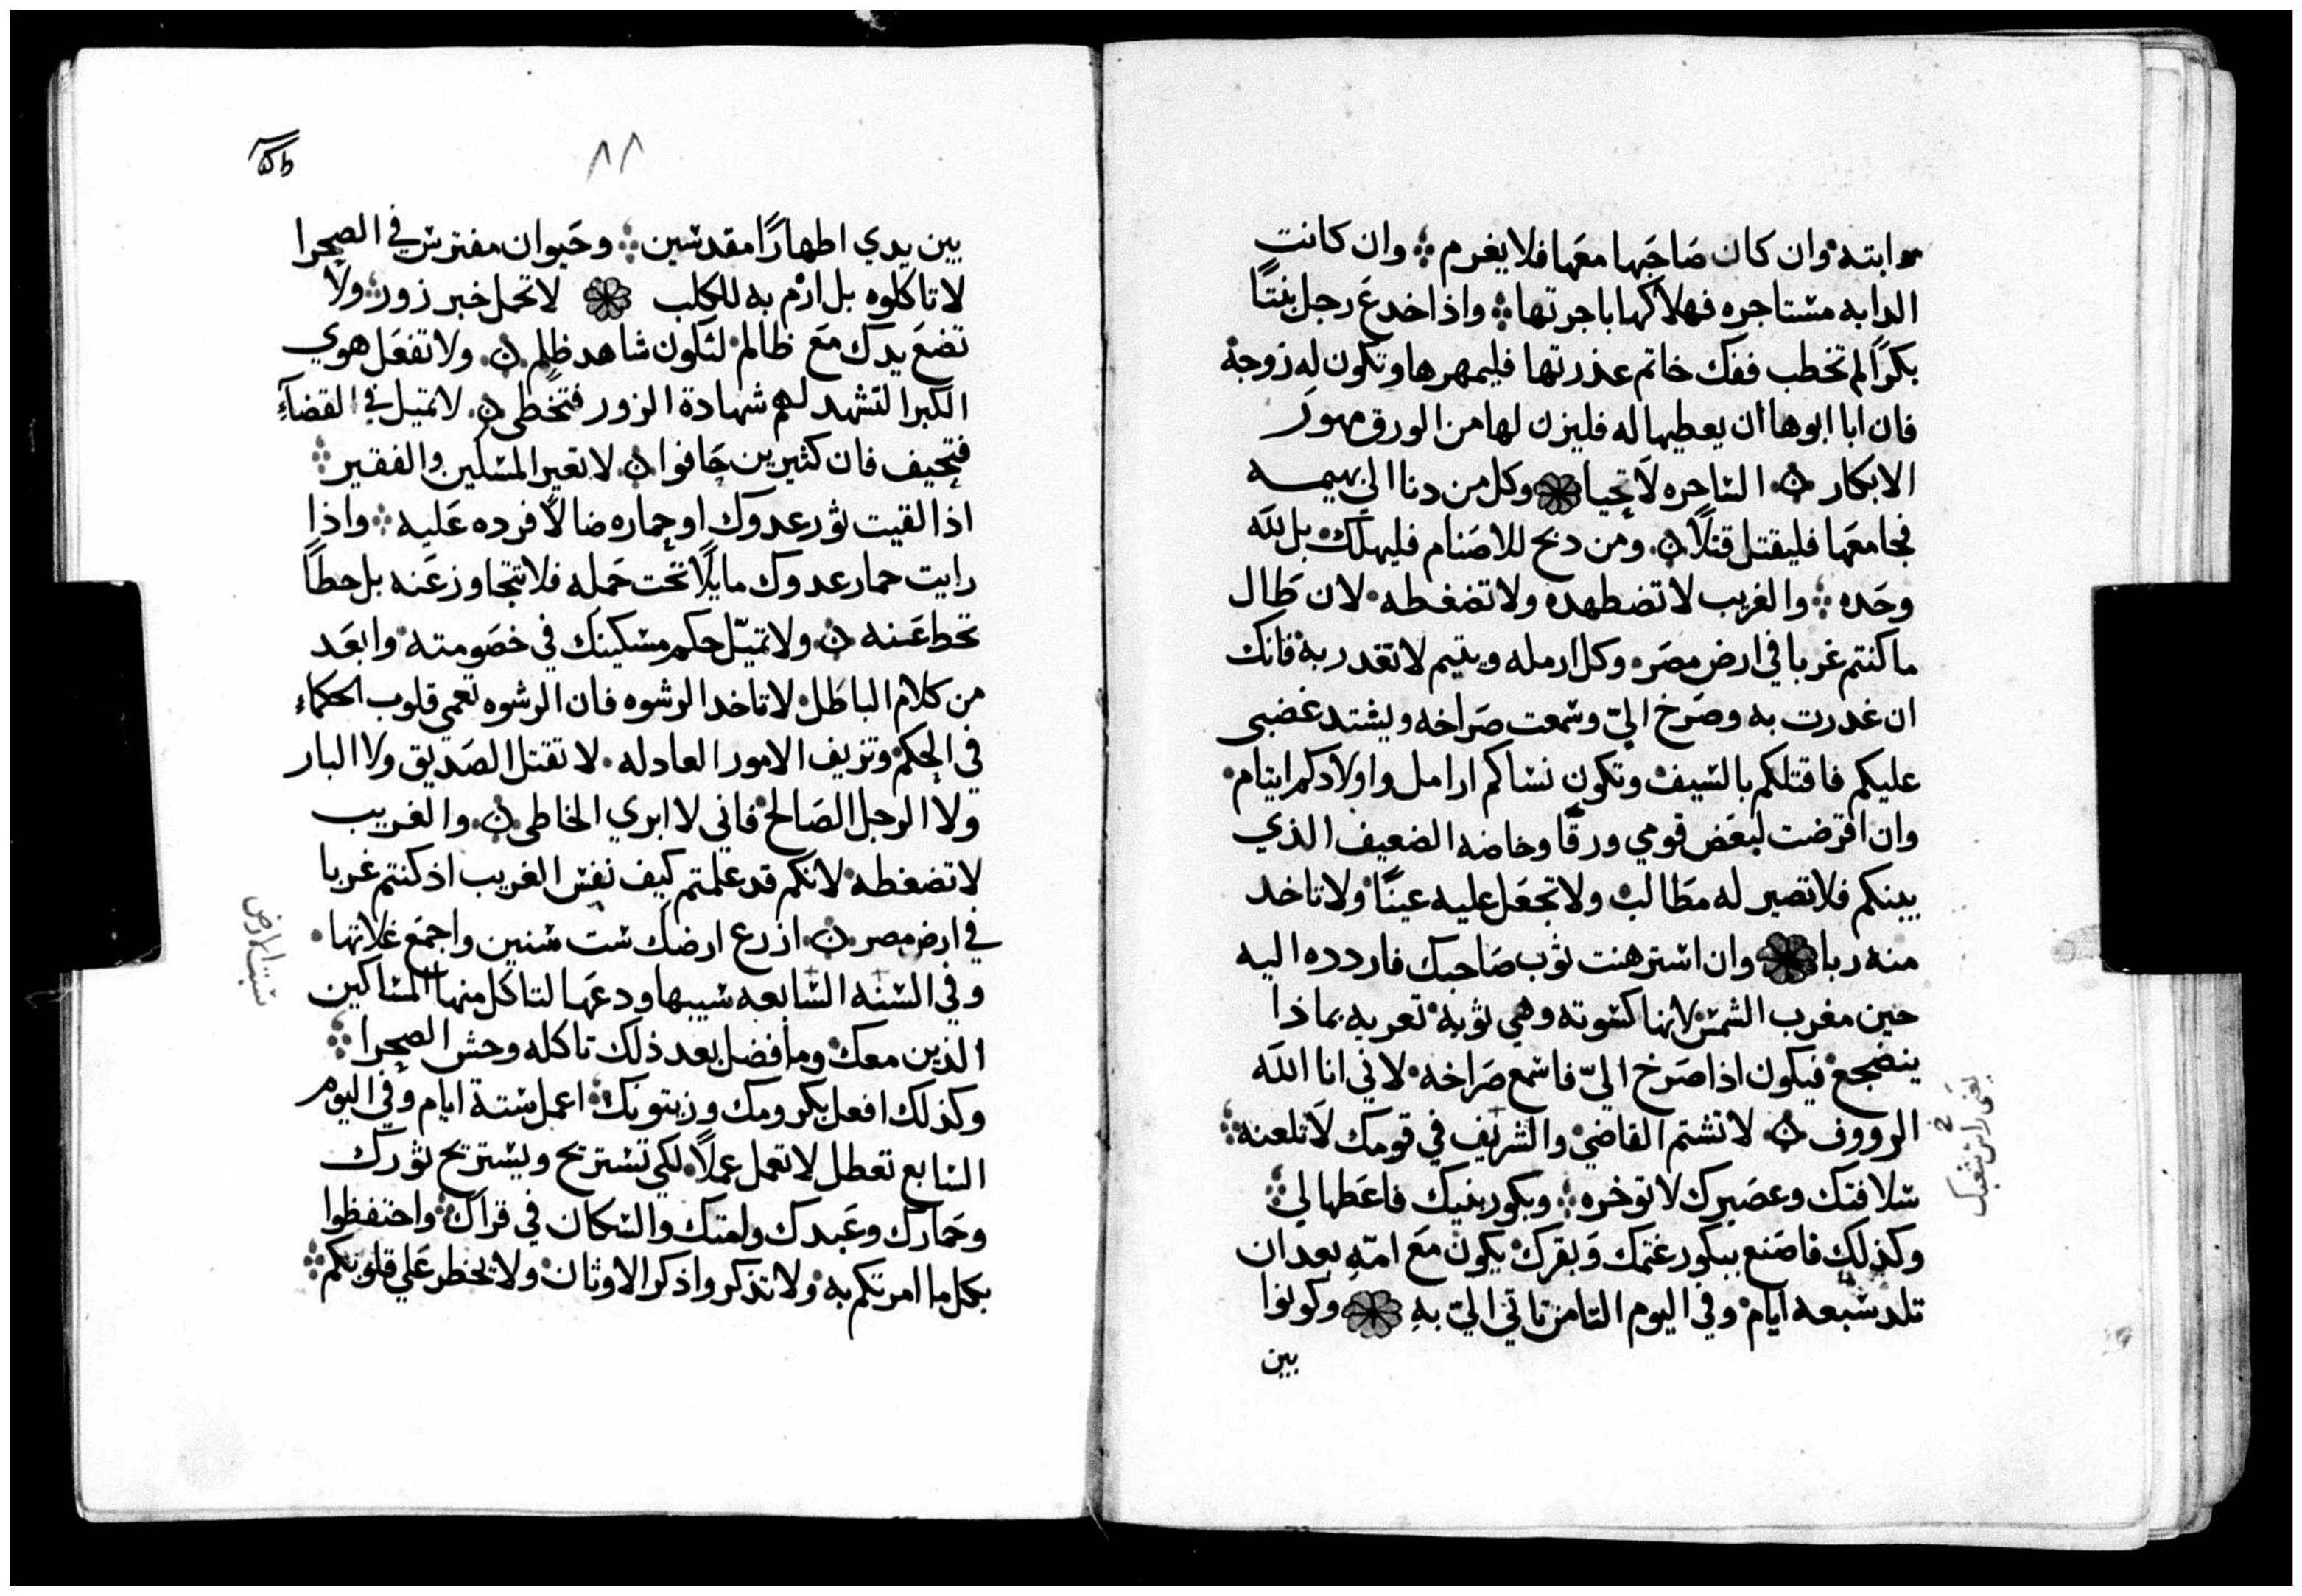 دابته وان كان صَاحبَها معَها فلا يغرم ؞ وان كانت
الدابه مستاجره فهلاكها باجرتها ؞ واذا خدعَ رجل بنتًا
بكرًا لم تخطب ففك خاتم عذرتها فليمهرها وتكون له زوجة
فان ابا ابوها ان يعطيها له فليزن لها من الورق مهور
الابكار ۞ الساحره لا تحيا ۞ وكل من دنا الي بهيمه
فجامعَها فليقتل قتلًا ۞ ومن دبح للاصَنام فليهلك بل لله
وحَده ؞ والغريب لا تضطهده ولا تضغطه • لان طَال
ما كنتم غربا في ارض مصَر • وكل ارمله ويتيم لا تغدر به فانك
ان غدرت به وصَرخ اليّ وسمعت صَراخه ويشتد غضبي
عليكم فاقتلكم بالسيف وتكون نساكم ارامل واولادكم ايتام •
وان اقرضت لبعَض قومي ورقًا وخاصَه الضعيف الذي
بينكم فلا تصير له مطَالب ولا تجعَل عليه عينًا ولا تاخد
منه ربا ۞ وان استرهنت ثوب صَاحبك فاردده اليه
حين مغرب الشمس لانها كسوته وهي ثوبه تعريه بماذا
ينضجع فيكون اذا صَرخ اليّ فاسمع صَراخه • لاني انا الله
الرووف ۞ لا تشتم القاضي والشريف في قومك لا تلعنه ؞
سلافتك وعصَيرك لا توخره ؞ وبكور بنيك فاعَطها لي ؞
وكذلك فاصَنع ببكور غنمك وَبقرك يكون معَ امّه بعد ان
تلد سبعه ايام وفي اليوم التامن تاتي اليّ به ۞ وكونوا
بين
يعني راس شعبك
٨٨
بين يدي اطهارًا مقدسين ؞ وحَيوان مفترس في الصحرا
لا تاكلوه بل ارم به للكلب ۞ لا تحمل خبر زور ولا
تضعَ يدك معَ ظالم لتكون شاهد ظلم ۞ ولا تفعَل هوي
الكبرا لتشهد لهم شهادة الزور فتخطي ۞ لا تميل في القضآءِ
فتحيف فان كثيرين حَافوا ۞ لا تعير المسكين والفقير ؞
اذا لقيت ثور عدوك او حماره ضالًا فرده عَليه ؞ واذا
رايت حمار عدوك مايلًا تحت حَمله فلا تتجاوز عَنه بل حطاً
تحط عَنه ۞ ولا تميّل حكم مسكينك في خصَومته وابعَد
من كلام الباطَل لا تاخد الرشوه فان الرشوه تعمي قلوب الحكماء
في الحكم وتزيف الامور العادله • لا تقتل الصَديق ولا البار
ولا الرجل الصَالح فاني لا ابري الخاطي ۞ والغريب
لا تضغطه لانكم قد علمتم كيف نفس الغريب اذ كنتم غربا
في ارض مصر ۞ ازرع ارضك ست سنين واجمَع غلاتها •
وفي السنه السابعه سيبها ودعَها لتاكل منها المساكين
الذين معك وما فضل بعد ذلك تاكله وحش الصحرا ؞
وكذلك افعل بكرومك وزيتونك ؞ اعمل ستة ايام وفي اليوم
السابع تعطل لا تعمل عملًا لكي تستريح ويستريح ثورك
وحَمارك وعَبدك وامتك والسكان في قراك ؞ واحتفظوا
بكل ما امرتكم به ولا تذكروا ذكر الاوثان ولا يخطر عَلي قلوبكم ؞
سبت الارض